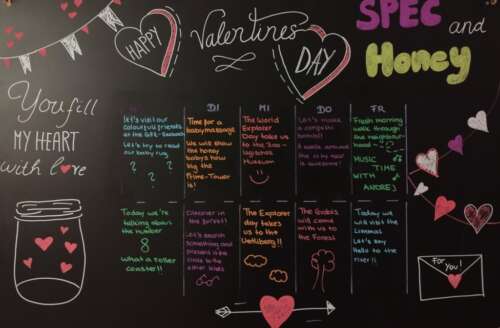 HAPPY
Valentines
DAY
SPEC and
Honey
You fill
MY HEART
with love
DI
MI
DO
FR
Let's visit our
colourful friends
Let's try to read
our baby rug
? ? ?
Time for a
babymassage
We will show
the honey
babys how
big the
Prime-Tower
is!
The World
Explorer
Day take
us to the
Zoo-
logisches
Museum
Let's make
a
walk around
the
is awesome!
Fresh morning
walk through
the neighbour-
hood
MUSIC
TIME
WITH
ANDREJ
Today we're
talking about
the number
8
what a roller
coaster!!
Discover in
the forest!!
Let's search
something and
present in the
circle to the
other kids
The Explorer
day takes
us to the
Uetliberg!!
The
will come
with us to
the Forest
Today we
will visit the
Limmat
Let's say
Hello to the
river!!
For you!